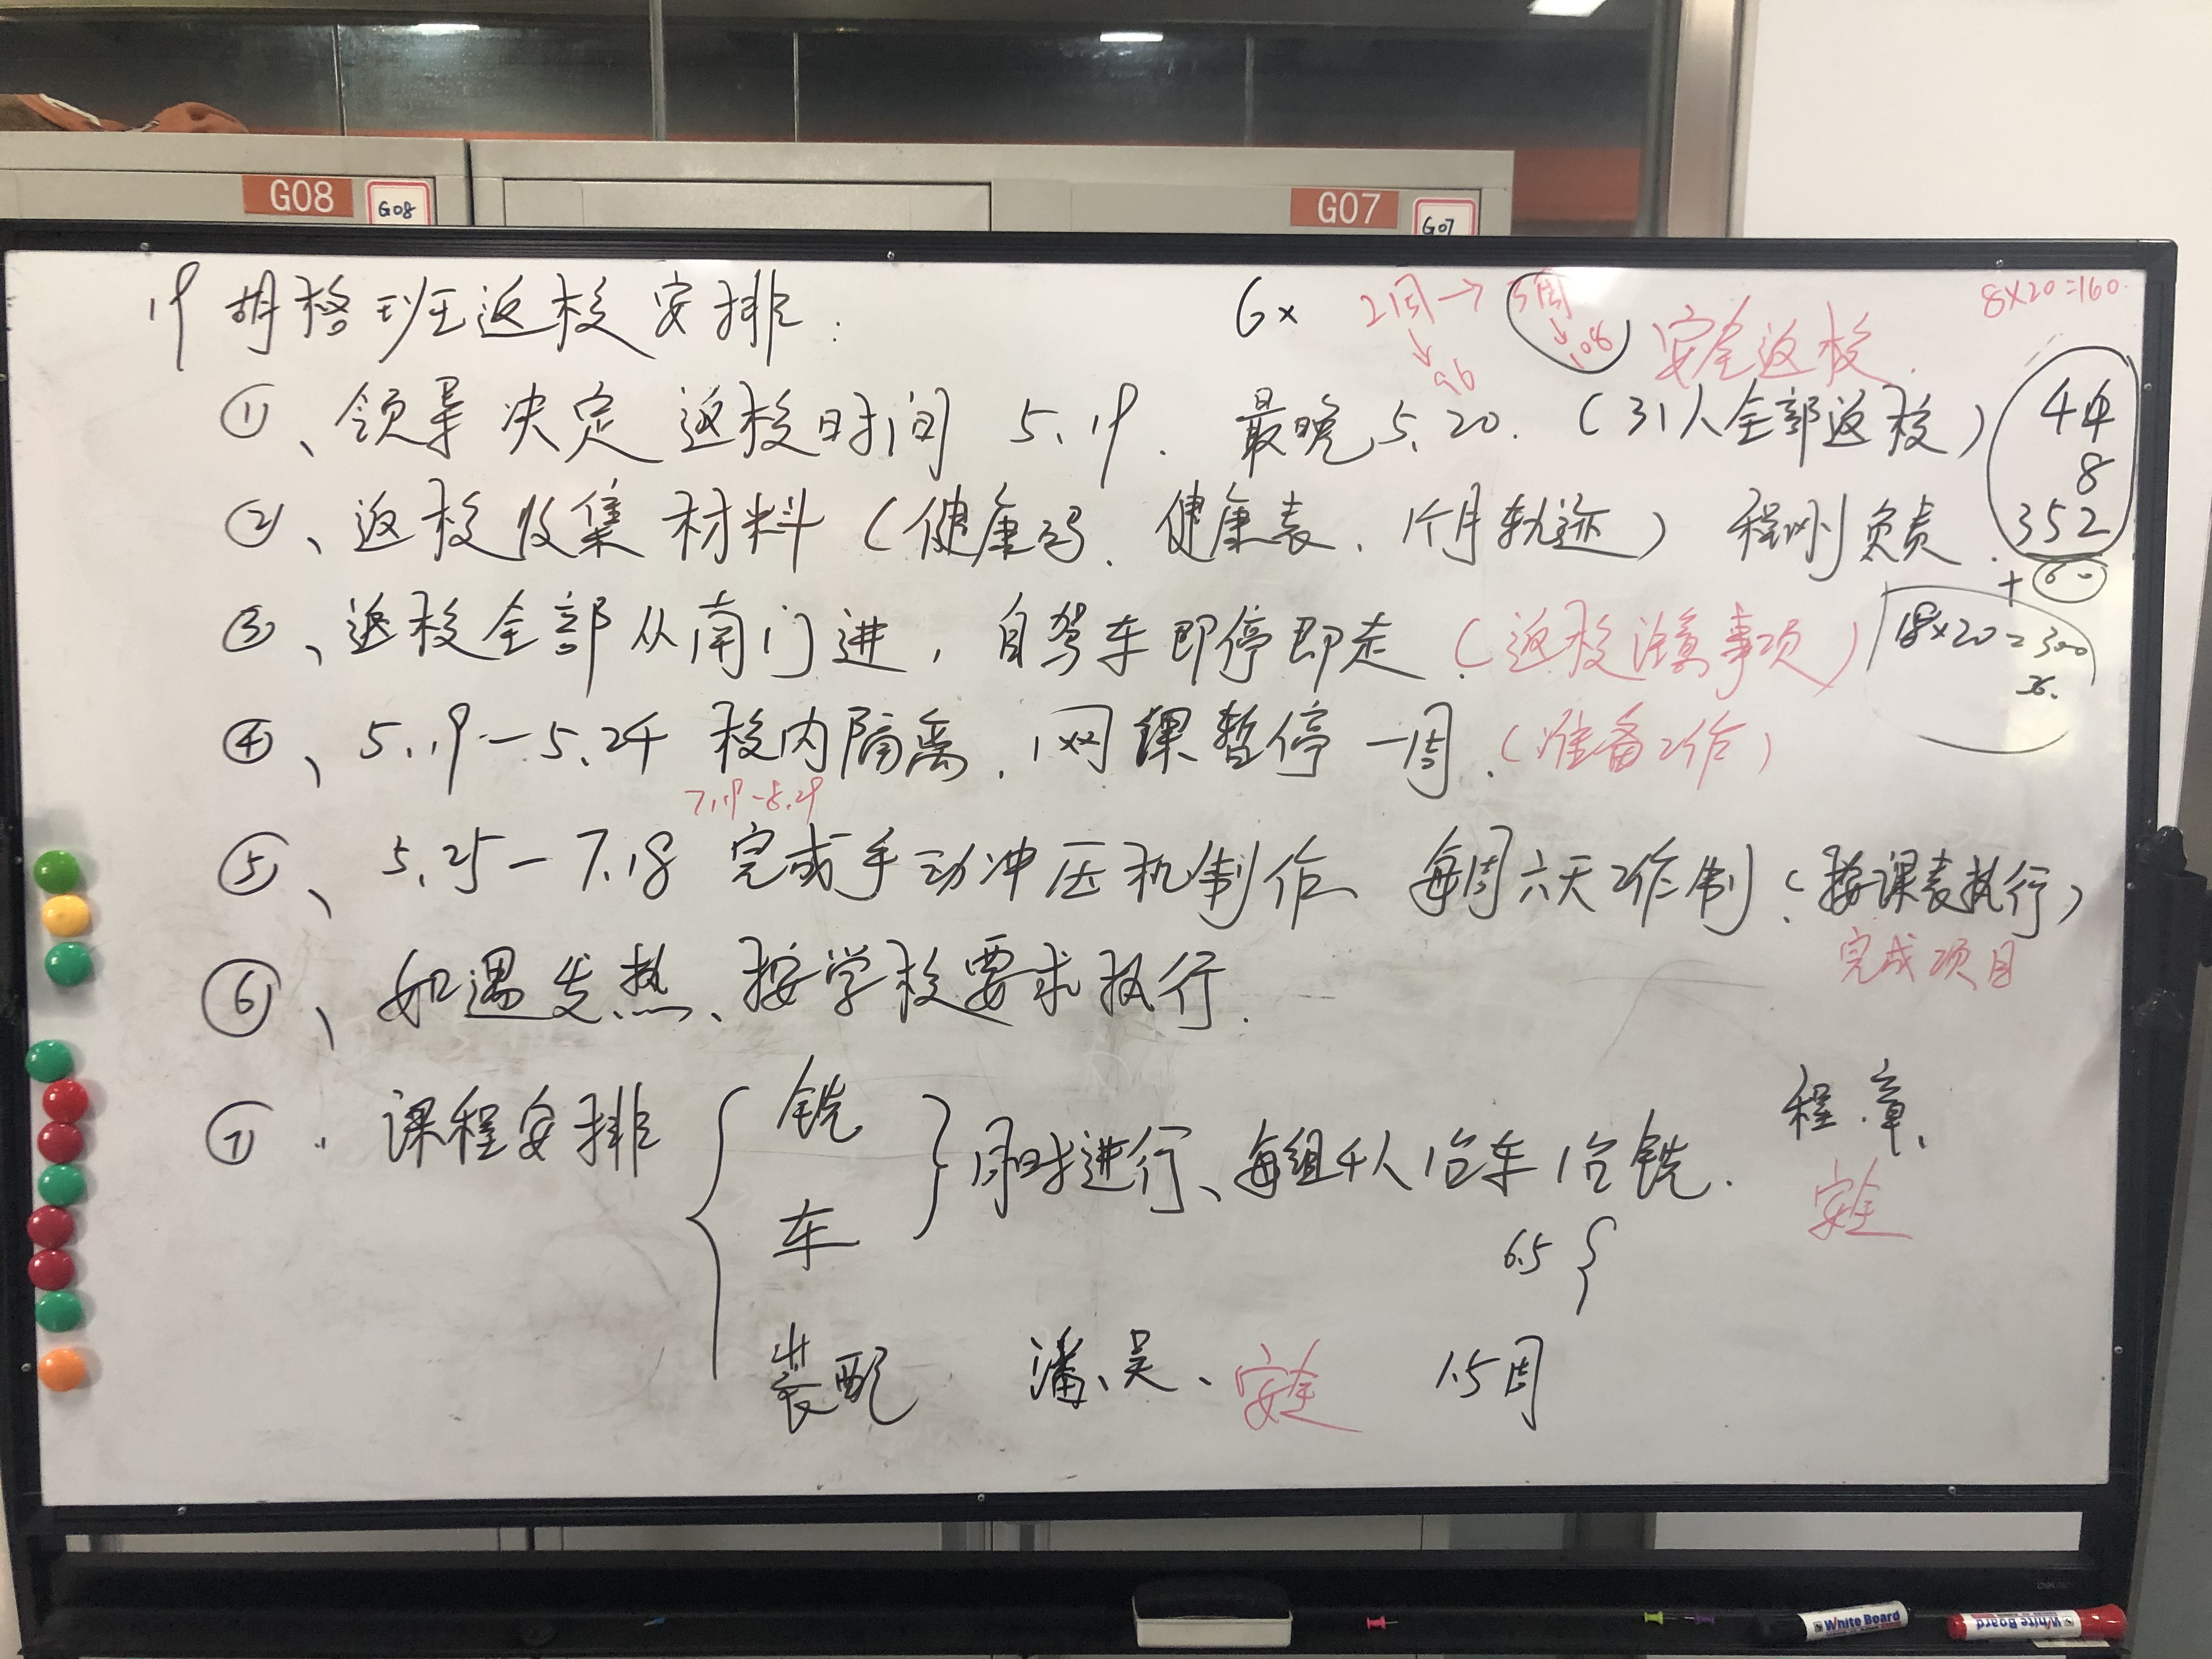 G08
G08
G07
G07
19胡格班返校安排：
6×
2周→3周
↓96
↓108
安全返校.
8×20=160
①、领导决定返校时间 5.19. 最晚5.20.（31人全部返校）
44
8
352
+60
②、返校收集材料（健康码、健康表、1个月轨迹）程刚负责.
③、返校全部从南门进，自驾车即停即走.（返校注意事项）
18×20=300
36.
④、5.19－5.24 校内隔离、网课暂停一周.（准备工作）
7.19－8.29
⑤、5.25－7.18 完成手动冲压机制作、每周六天工作制.（按课表执行）
完成项目
⑥、如遇发热、按学校要求执行.
⑦、课程安排 { 铣
车 } 同时进行、每组4人1台车1台铣.
程、章、
安全
6.5 {
装配 潘、吴、安全 1.5周
White Board
White Board